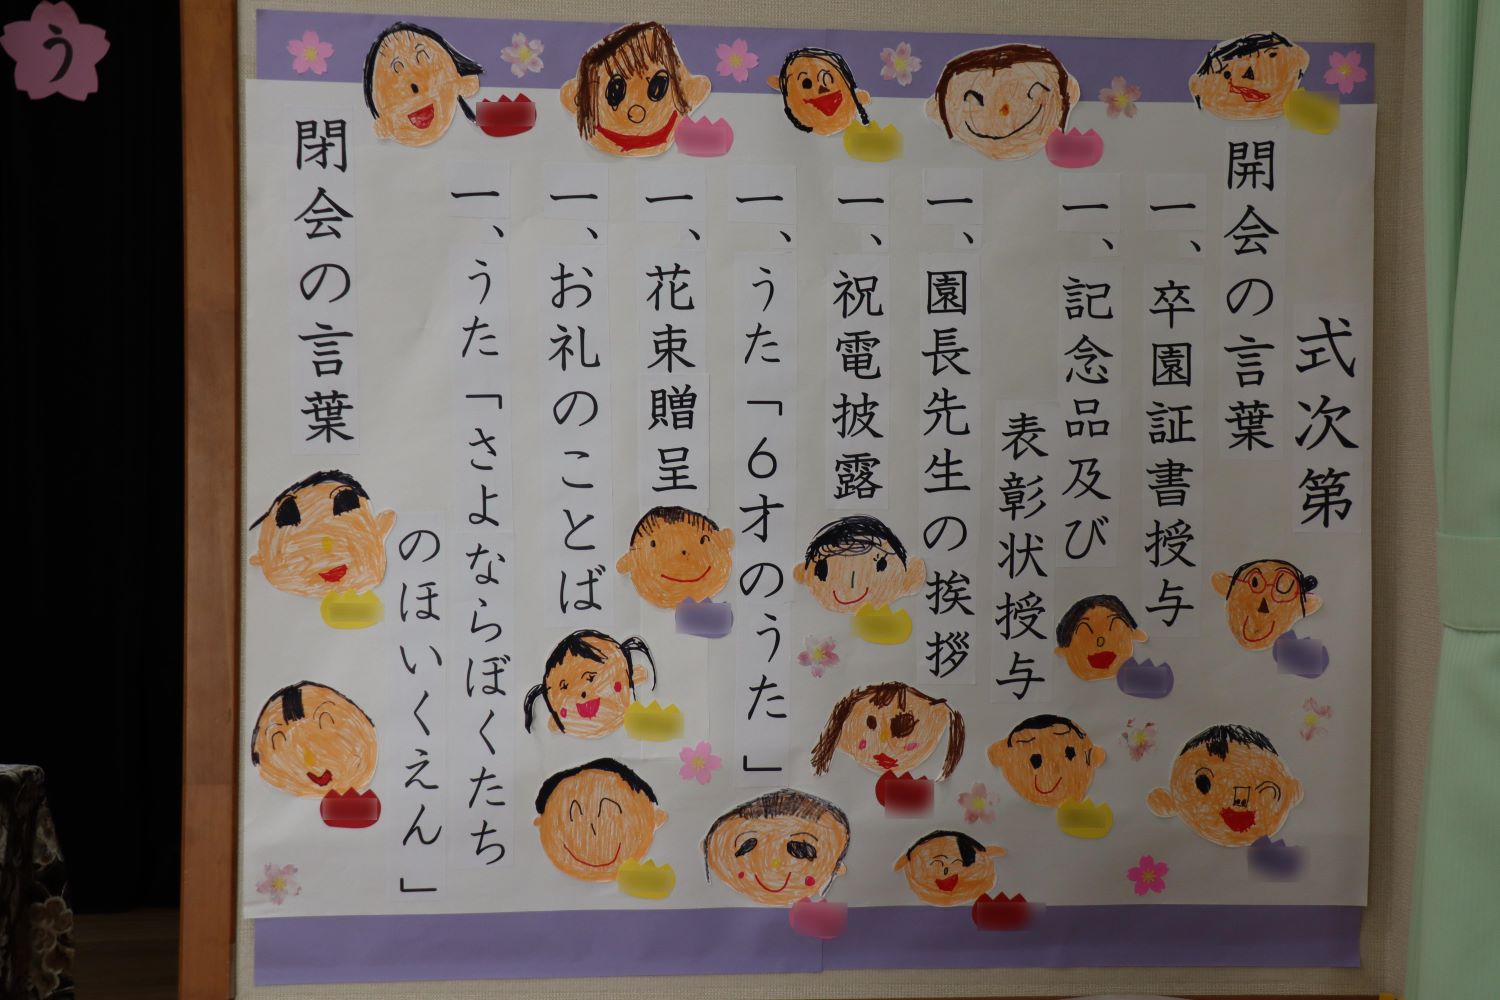 式次第
開会の言葉
一、卒園証書授与
一、記念品及び
表彰状授与
一、園長先生の挨拶
一、祝電披露
一、うた「6才のうた」
一、花束贈呈
一、お礼のことば
一、うた「さよならぼくたち
のほいくえん」
閉会の言葉
う